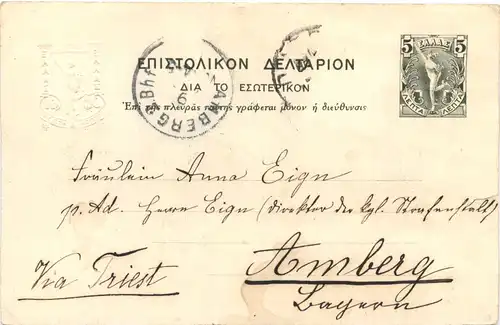 ΕΠΙΣΤΟΛΙΚΟΝ ΔΕΛΤΑΡΙΟΝ
ΔΙΑ ΤΟ ΕΣΩΤΕΡΙΚΟΝ
Ἐπὶ τῆς πλευρᾶς ταύτης γράφεται μόνον ἡ διεύθυνσις
5 ΕΛΛΑΣ 5
ΛΕΠΤΑ ΛΕΠΤΑ
AMBERG Bhf
Fräulein Anna Eign
p. Ad. Herrn Eign (Direktor der kgl. Strafanstalt)
Via Triest
Amberg
Bayern